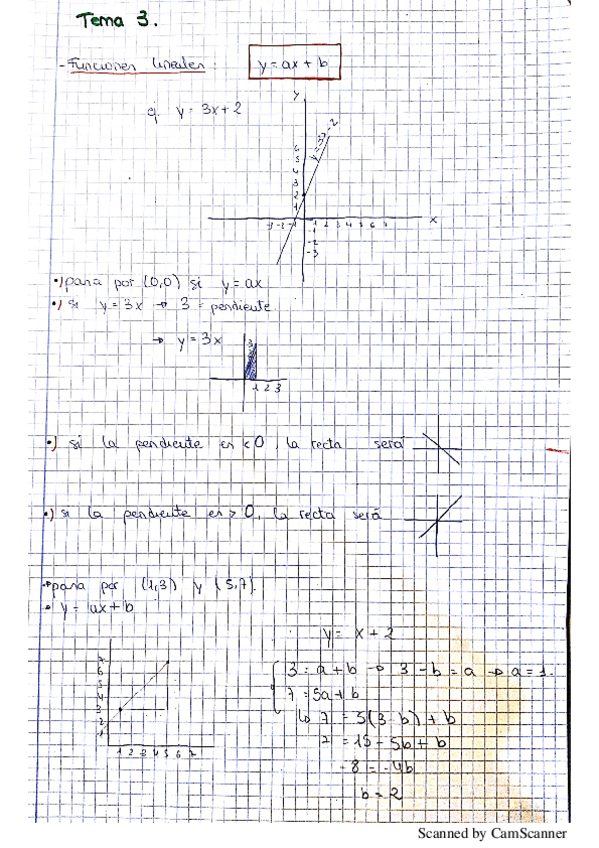 Tema 3.
- Funciones lineales: y = ax + b
ej y = 3x + 2
y
6
5
4
3
2
1
-3 -2 -1 1 2 3 4 5 6 7 x
-1
-2
-3
•) pasa por (0,0) si y = ax
•) si y = 3x → 3 = pendiente
→ y = 3x
3
1 2 3
•) si la pendiente es < 0, la recta será
•) si la pendiente es > 0, la recta será
• pasa por (1,3) y (5,7).
• y = ax + b
y = x + 2
3 = a + b → 3 - b = a → a = 1.
7 = 5a + b
↳ 7 = 5(3 - b) + b
7 = 15 - 5b + b
-8 = -4b
b = 2
7
6
5
4
3
2
1
1 2 3 4 5 6 7
Scanned by CamScanner